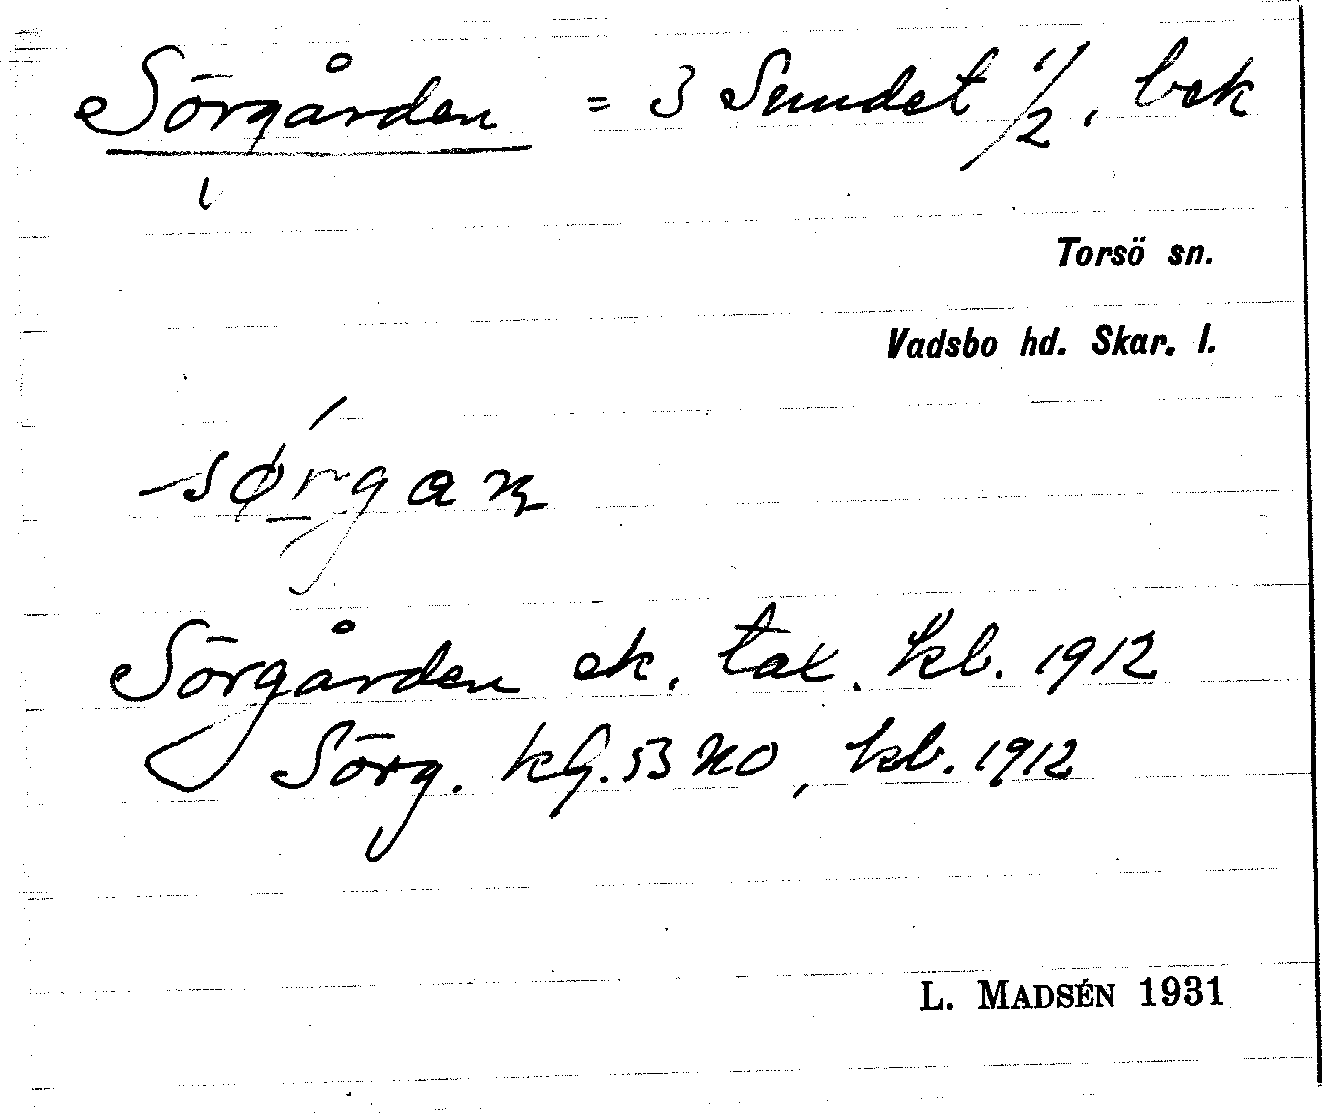 Sörgården = 3 Sundet 1/2, bek
Torsö sn.
Vadsbo hd. Skar. l.
Sörgården ek. tax. kb. 1912
Sörg. kb. 1912
L. MADSÉN 1931